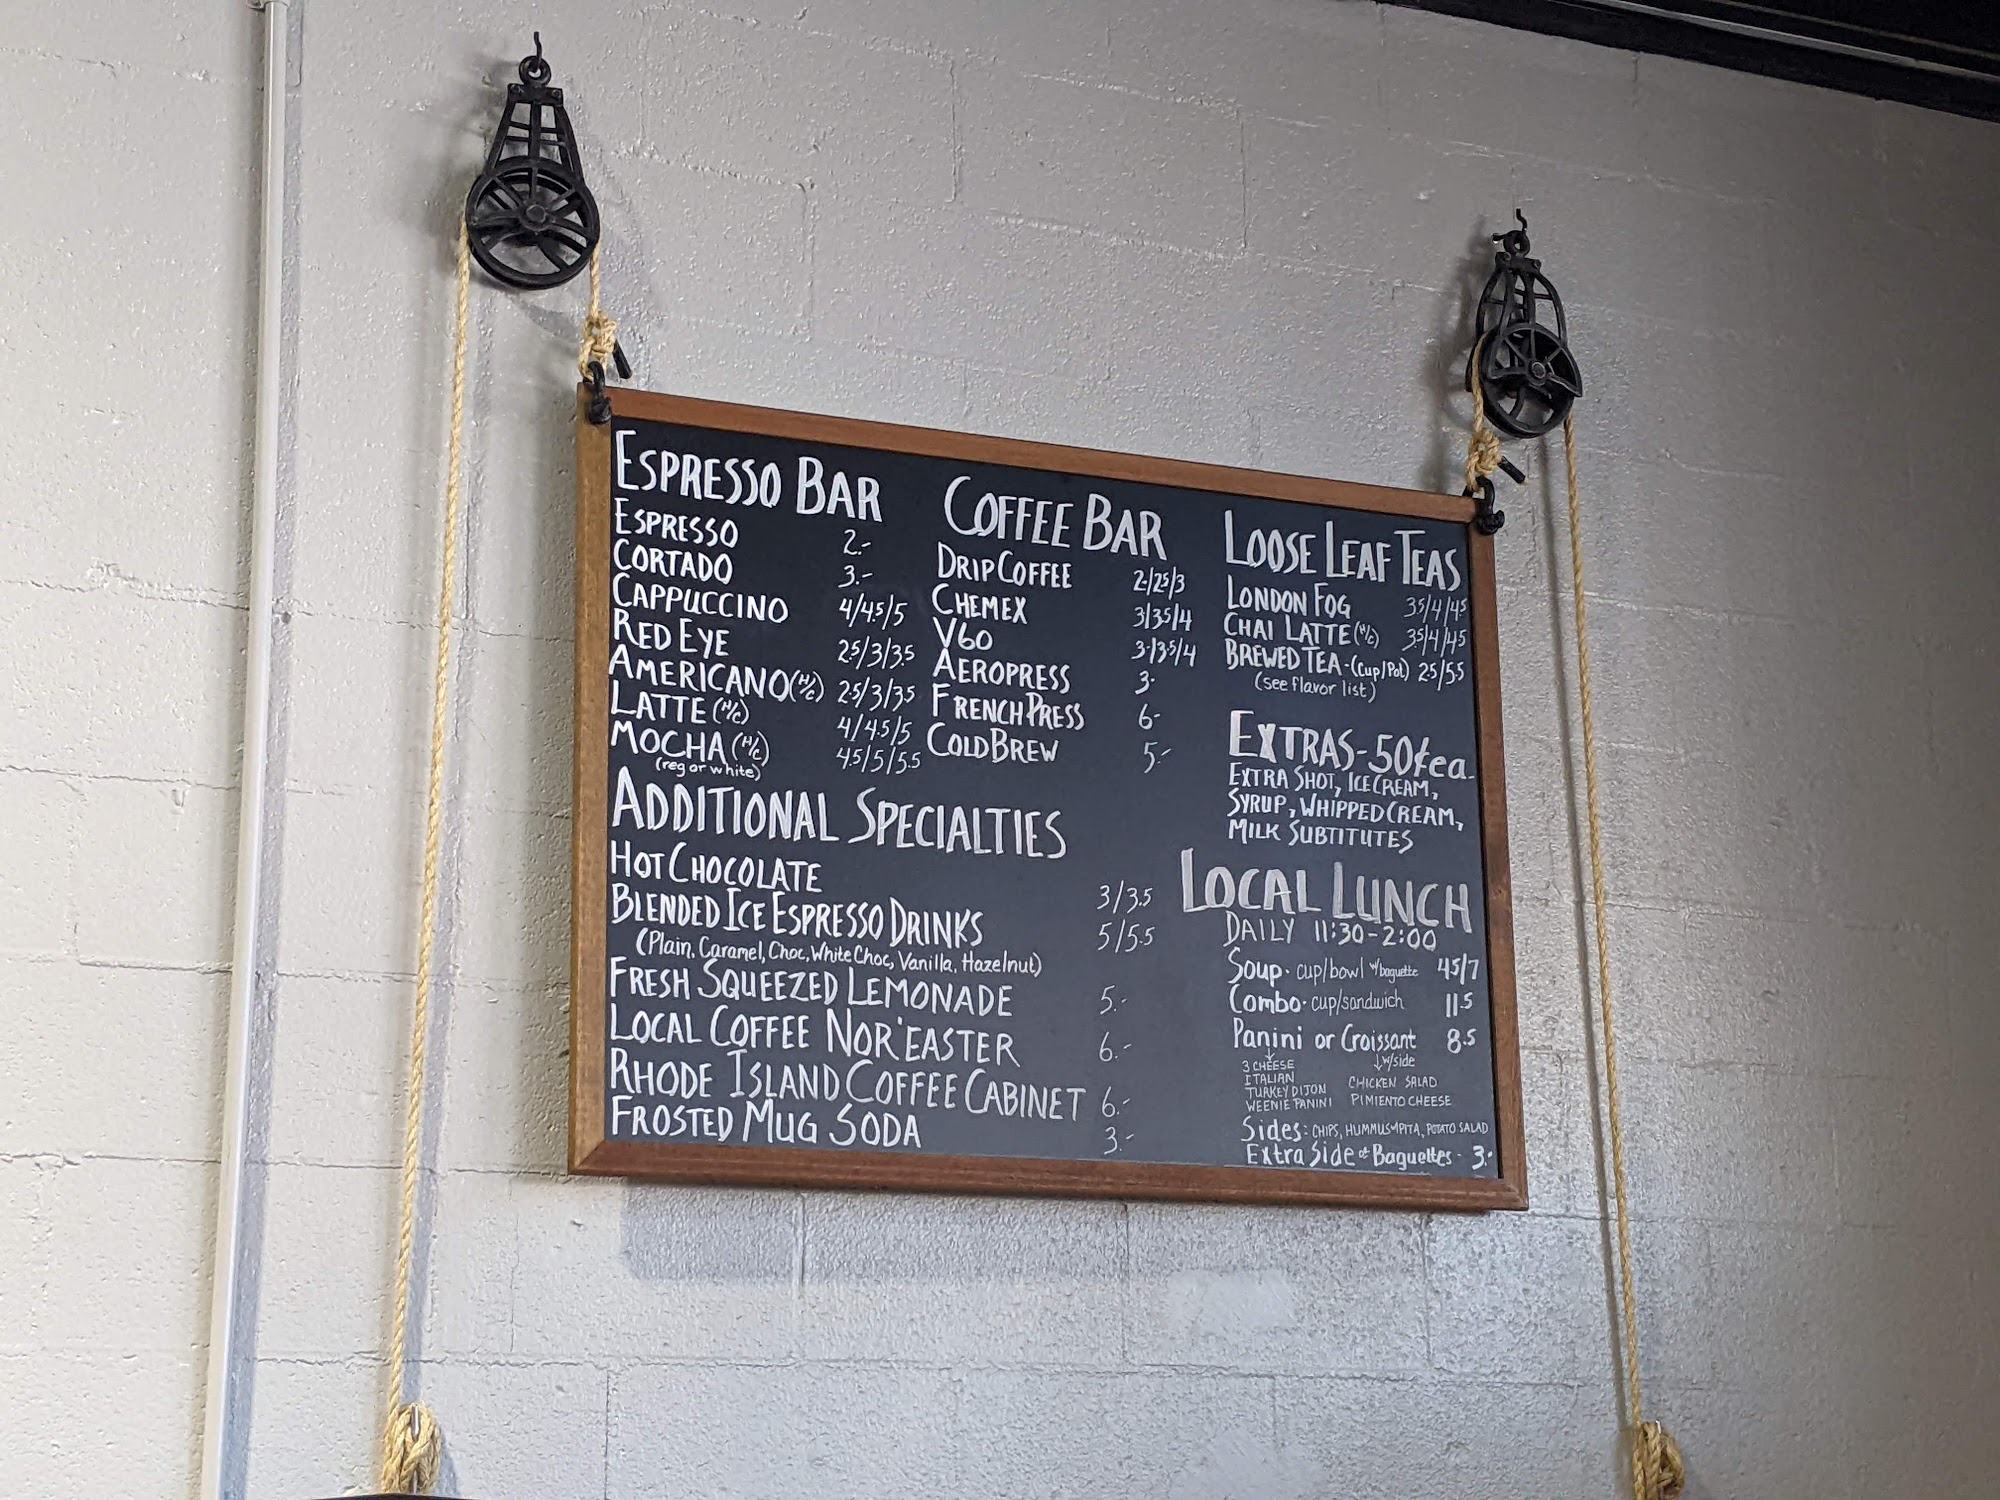 ESPRESSO BAR
ESPRESSO 2.-
CORTADO 3.-
CAPPUCCINO 4/4.5/5
RED EYE 2.5/3/3.5
AMERICANO (H/C) 2.5/3/3.5
LATTE (H/C) 4/4.5/5
MOCHA (H/C) 4.5/5/5.5
(reg or white)
COFFEE BAR
DRIP COFFEE 2/2.5/3
CHEMEX 3/3.5/4
V60 3/3.5/4
AEROPRESS 3-
FRENCH PRESS 6-
COLD BREW 5-
ADDITIONAL SPECIALTIES
HOT CHOCOLATE 3/3.5
BLENDED ICE ESPRESSO DRINKS 5/5.5
(Plain, Caramel, Choc, White Choc, Vanilla, Hazelnut)
FRESH SQUEEZED LEMONADE 5.-
LOCAL COFFEE NOR'EASTER 6.-
RHODE ISLAND COFFEE CABINET 6.-
FROSTED MUG SODA 3.-
LOOSE LEAF TEAS
LONDON FOG 3.5/4/4.5
CHAI LATTE (H/C) 3.5/4/4.5
BREWED TEA - (Cup/Pot) 2.5/5.5
(see flavor list)
EXTRAS - 50¢ea.
EXTRA SHOT, ICE CREAM,
SYRUP, WHIPPED CREAM,
MILK SUBTITUTES
LOCAL LUNCH
DAILY 11:30-2:00
Soup · cup/bowl w/baguette 4.5/7
Combo · cup/sandwich 11.5
Panini or Croissant 8.5
w/side
3 CHEESE
ITALIAN CHICKEN SALAD
TURKEY DIJON PIMIENTO CHEESE
WEENIE PANINI
Sides: CHIPS, HUMMUS PITA, POTATO SALAD
Extra Side of Baguettes - 3.-